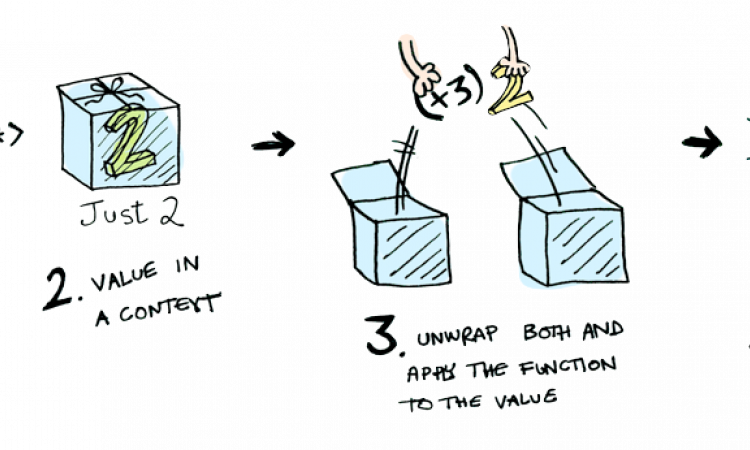 *>
2
Just 2
2. VALUE IN
A CONTEXT
(+3) 2
3. UNWRAP BOTH AND
APPLY THE FUNCTION
TO THE VALUE